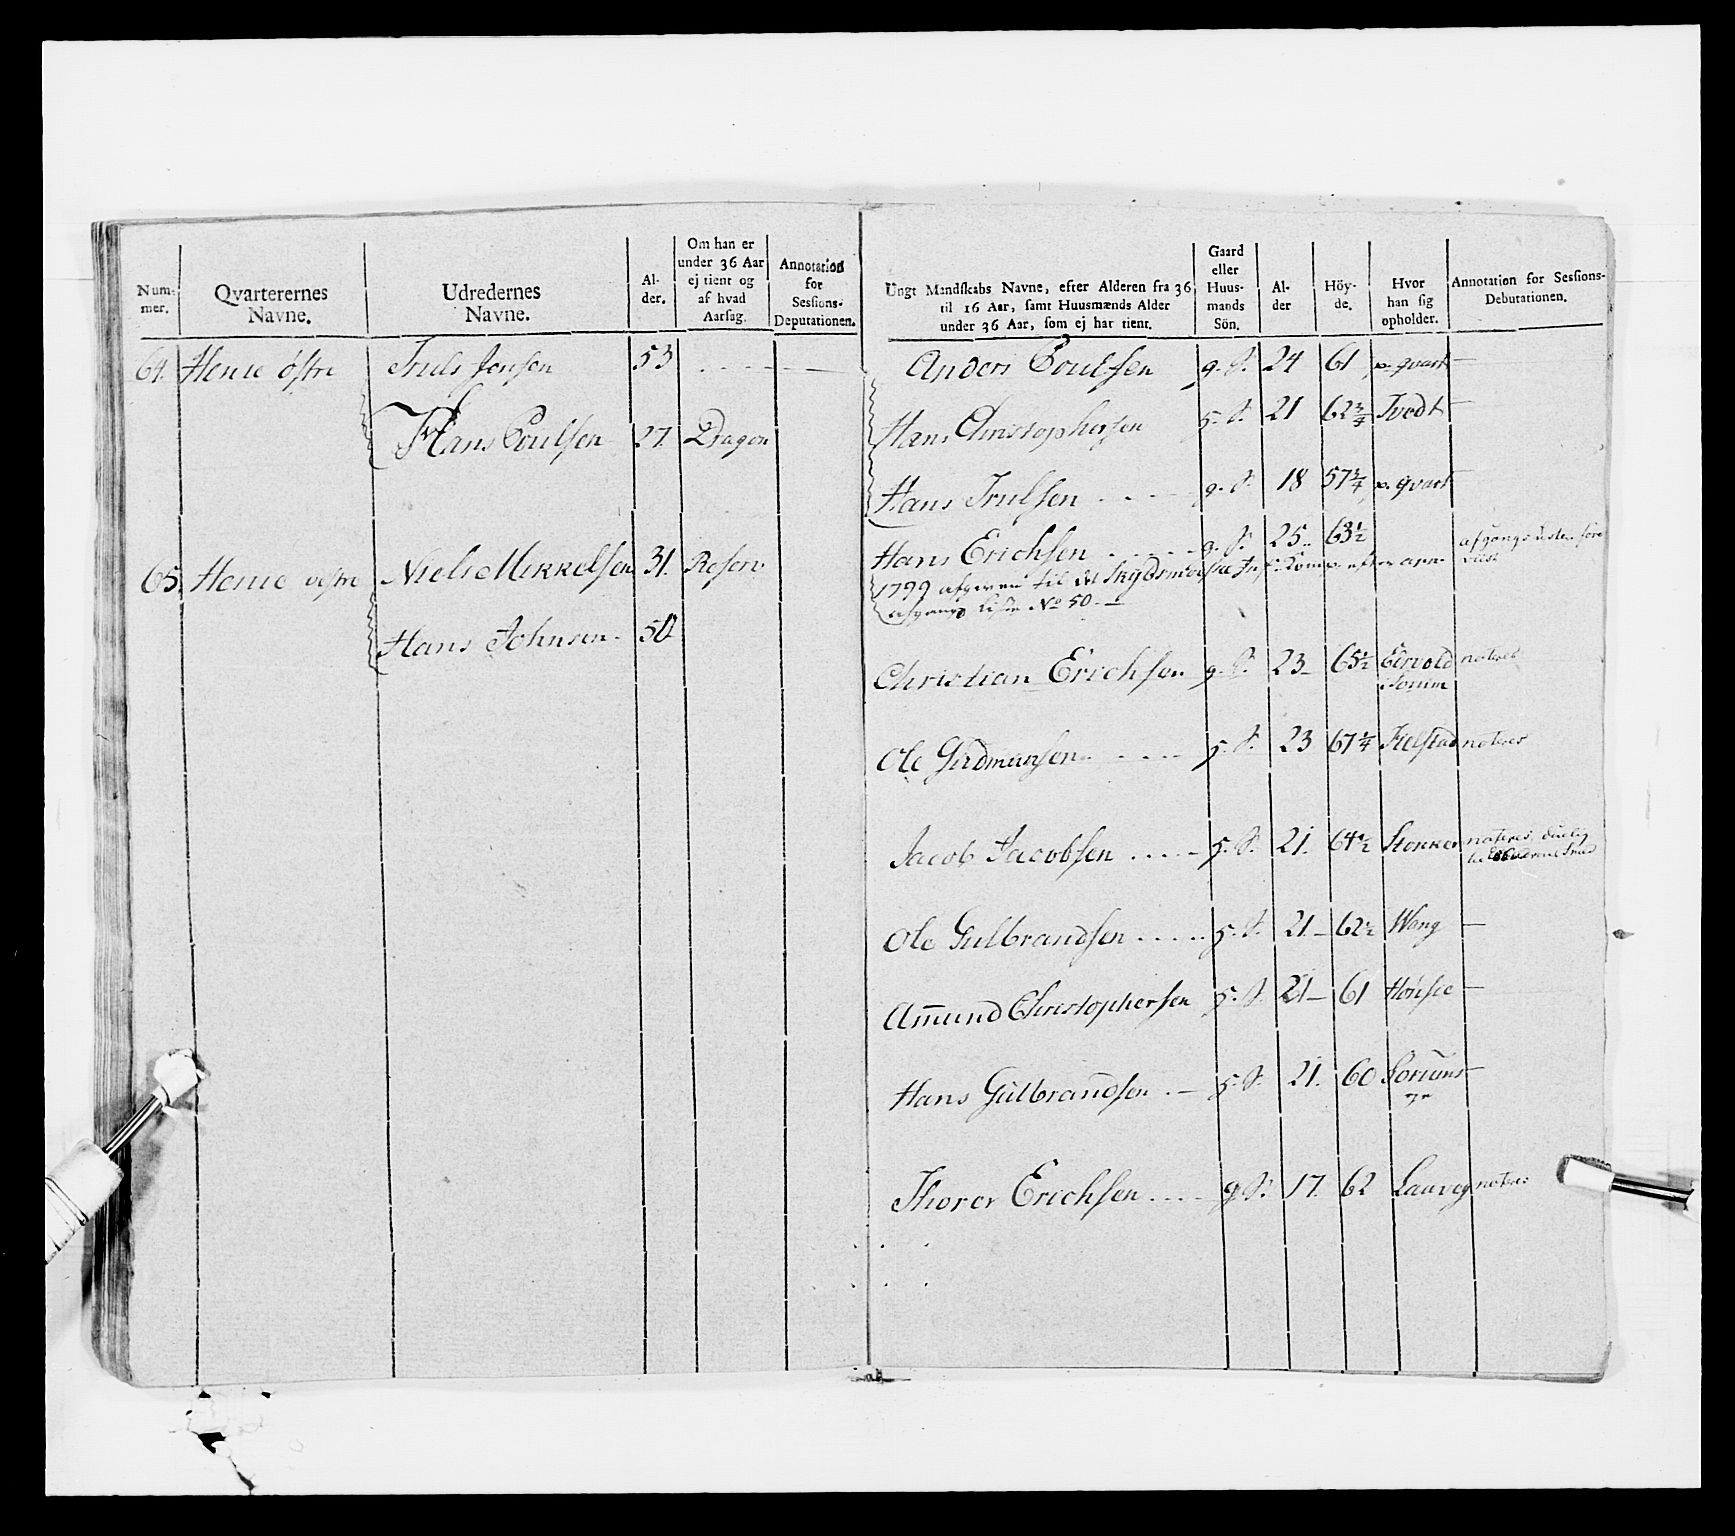 Num-
mer.
Qvarterernes
Navne.
Udredernes
Navne.
Al-
der.
Om han er
under 36 Aar
ej tient og
af hvad
Aarsag.
Annotation
for
Sessions-
Deputationen.
64. Henie östre Truls Jensen 53
Hans Poulsen 27. Dragon
65. Henie vestre Niels Mikkelsen 31. Reserv
Hans Johnsen 50
Ungt Mandskabs Navne, efter Alderen fra 36
til 16 Aar, samt Huusmænds Alder
under 36 Aar, som ej har tient.
Gaard
eller
Huus-
mands
Sön.
Al-
der
Höy-
de.
Hvor
han sig
opholder.
Annotation for Sessions-
Debutationen.
Anders Poulsen g. S. 24 61 p. qvart —
Hans Christophersen h. S. 21 62 3/4 Tvedt —
Hans Trulsen g. S. 18 57 3/4 p. qvart
Hans Erichsen g. S. 25 63 1/2 afgangs Listen före
vist
1799 afgiven til det Skydsmoeske Inf: Komp. efter arm
afgangs Liste No 50. —
Christian Erichsen g. S. 23 65 1/2 noteres
Sorum
Ole Gudmunsen h. S. 23 67 1/4 Kelstad noteres
Jacob Jacobsen h. S. 21. 64 1/2 noteres, duelig
Ole Gulbrandsen h. S. 21 — 62 1/2 Wang —
Am̄und Christophersen h. S. 21 — 61 Hönsie —
Hans Gulbrandsen h. S. 21. 60 —
Thorer Erichsen g S. 17. 62 Lauveg noteres